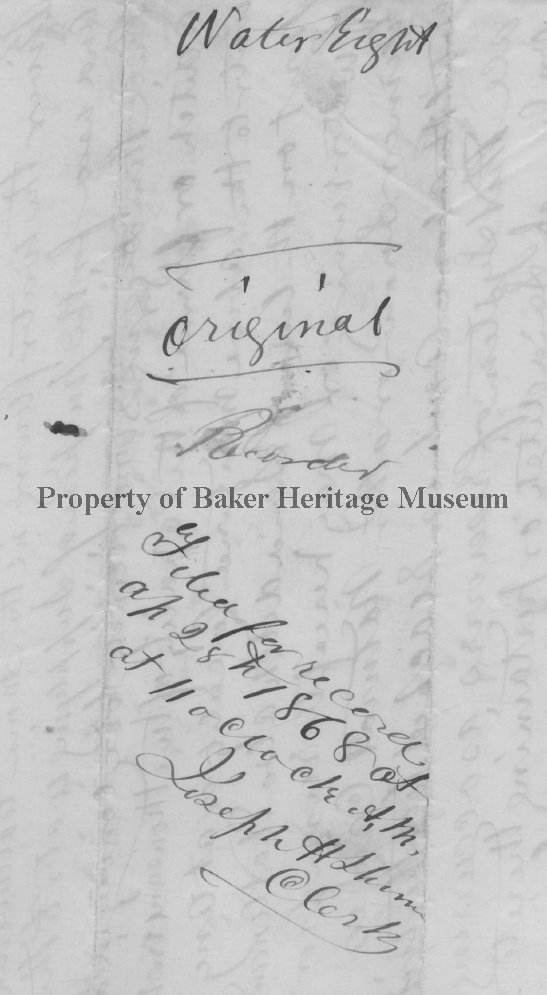 Water Eight
original
Recorder
Property of Baker Heritage Museum
Filed for record
ap 28th 1868 at
at 11 o clock A,M,
Joseph H Shinn
Clerk